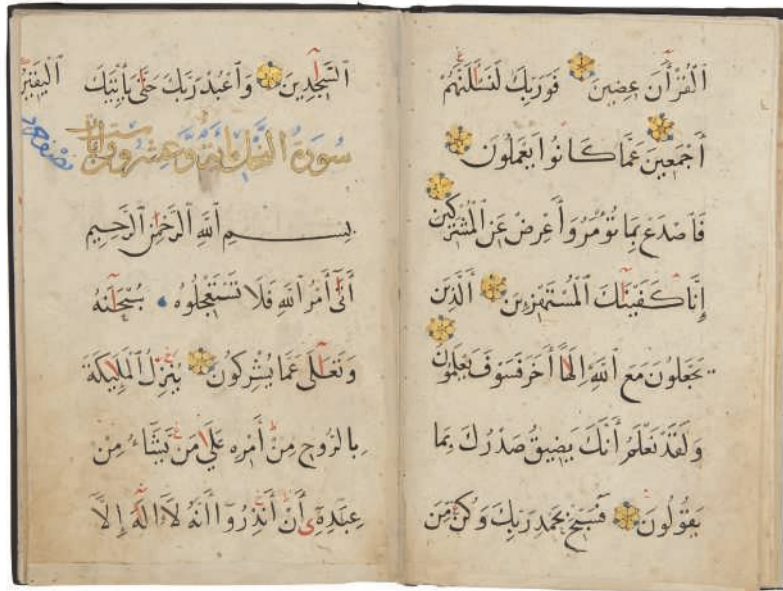 الْقُرْآنَ عِضِينَ فَوَرَبِّكَ لَنَسْـَٔلَنَّهُمْ
أَجْمَعِينَ عَمَّا كَانُوا يَعْمَلُونَ
فَاصْدَعْ بِمَا تُؤْمَرُ وَأَعْرِضْ عَنِ الْمُشْرِكِينَ
إِنَّا كَفَيْنَٰكَ الْمُسْتَهْزِءِينَ الَّذِينَ
يَجْعَلُونَ مَعَ اللَّهِ إِلَٰهًا آخَرَ فَسَوْفَ يَعْلَمُونَ
وَلَقَدْ نَعْلَمُ أَنَّكَ يَضِيقُ صَدْرُكَ بِمَا
يَقُولُونَ فَسَبِّحْ بِحَمْدِ رَبِّكَ وَكُن مِّنَ
السَّٰجِدِينَ وَاعْبُدْ رَبَّكَ حَتَّىٰ يَأْتِيَكَ الْيَقِينُ
سورة النحل مائة وعشرون
نصف حزب
بِسْمِ اللَّهِ الرَّحْمَٰنِ الرَّحِيمِ
أَتَىٰ أَمْرُ اللَّهِ فَلَا تَسْتَعْجِلُوهُ سُبْحَٰنَهُ
وَتَعَٰلَىٰ عَمَّا يُشْرِكُونَ يُنَزِّلُ الْمَلَٰئِكَةَ
بِالرُّوحِ مِنْ أَمْرِهِ عَلَىٰ مَن يَشَاءُ مِنْ
عِبَادِهِ أَنْ أَنذِرُوا أَنَّهُ لَا إِلَٰهَ إِلَّا